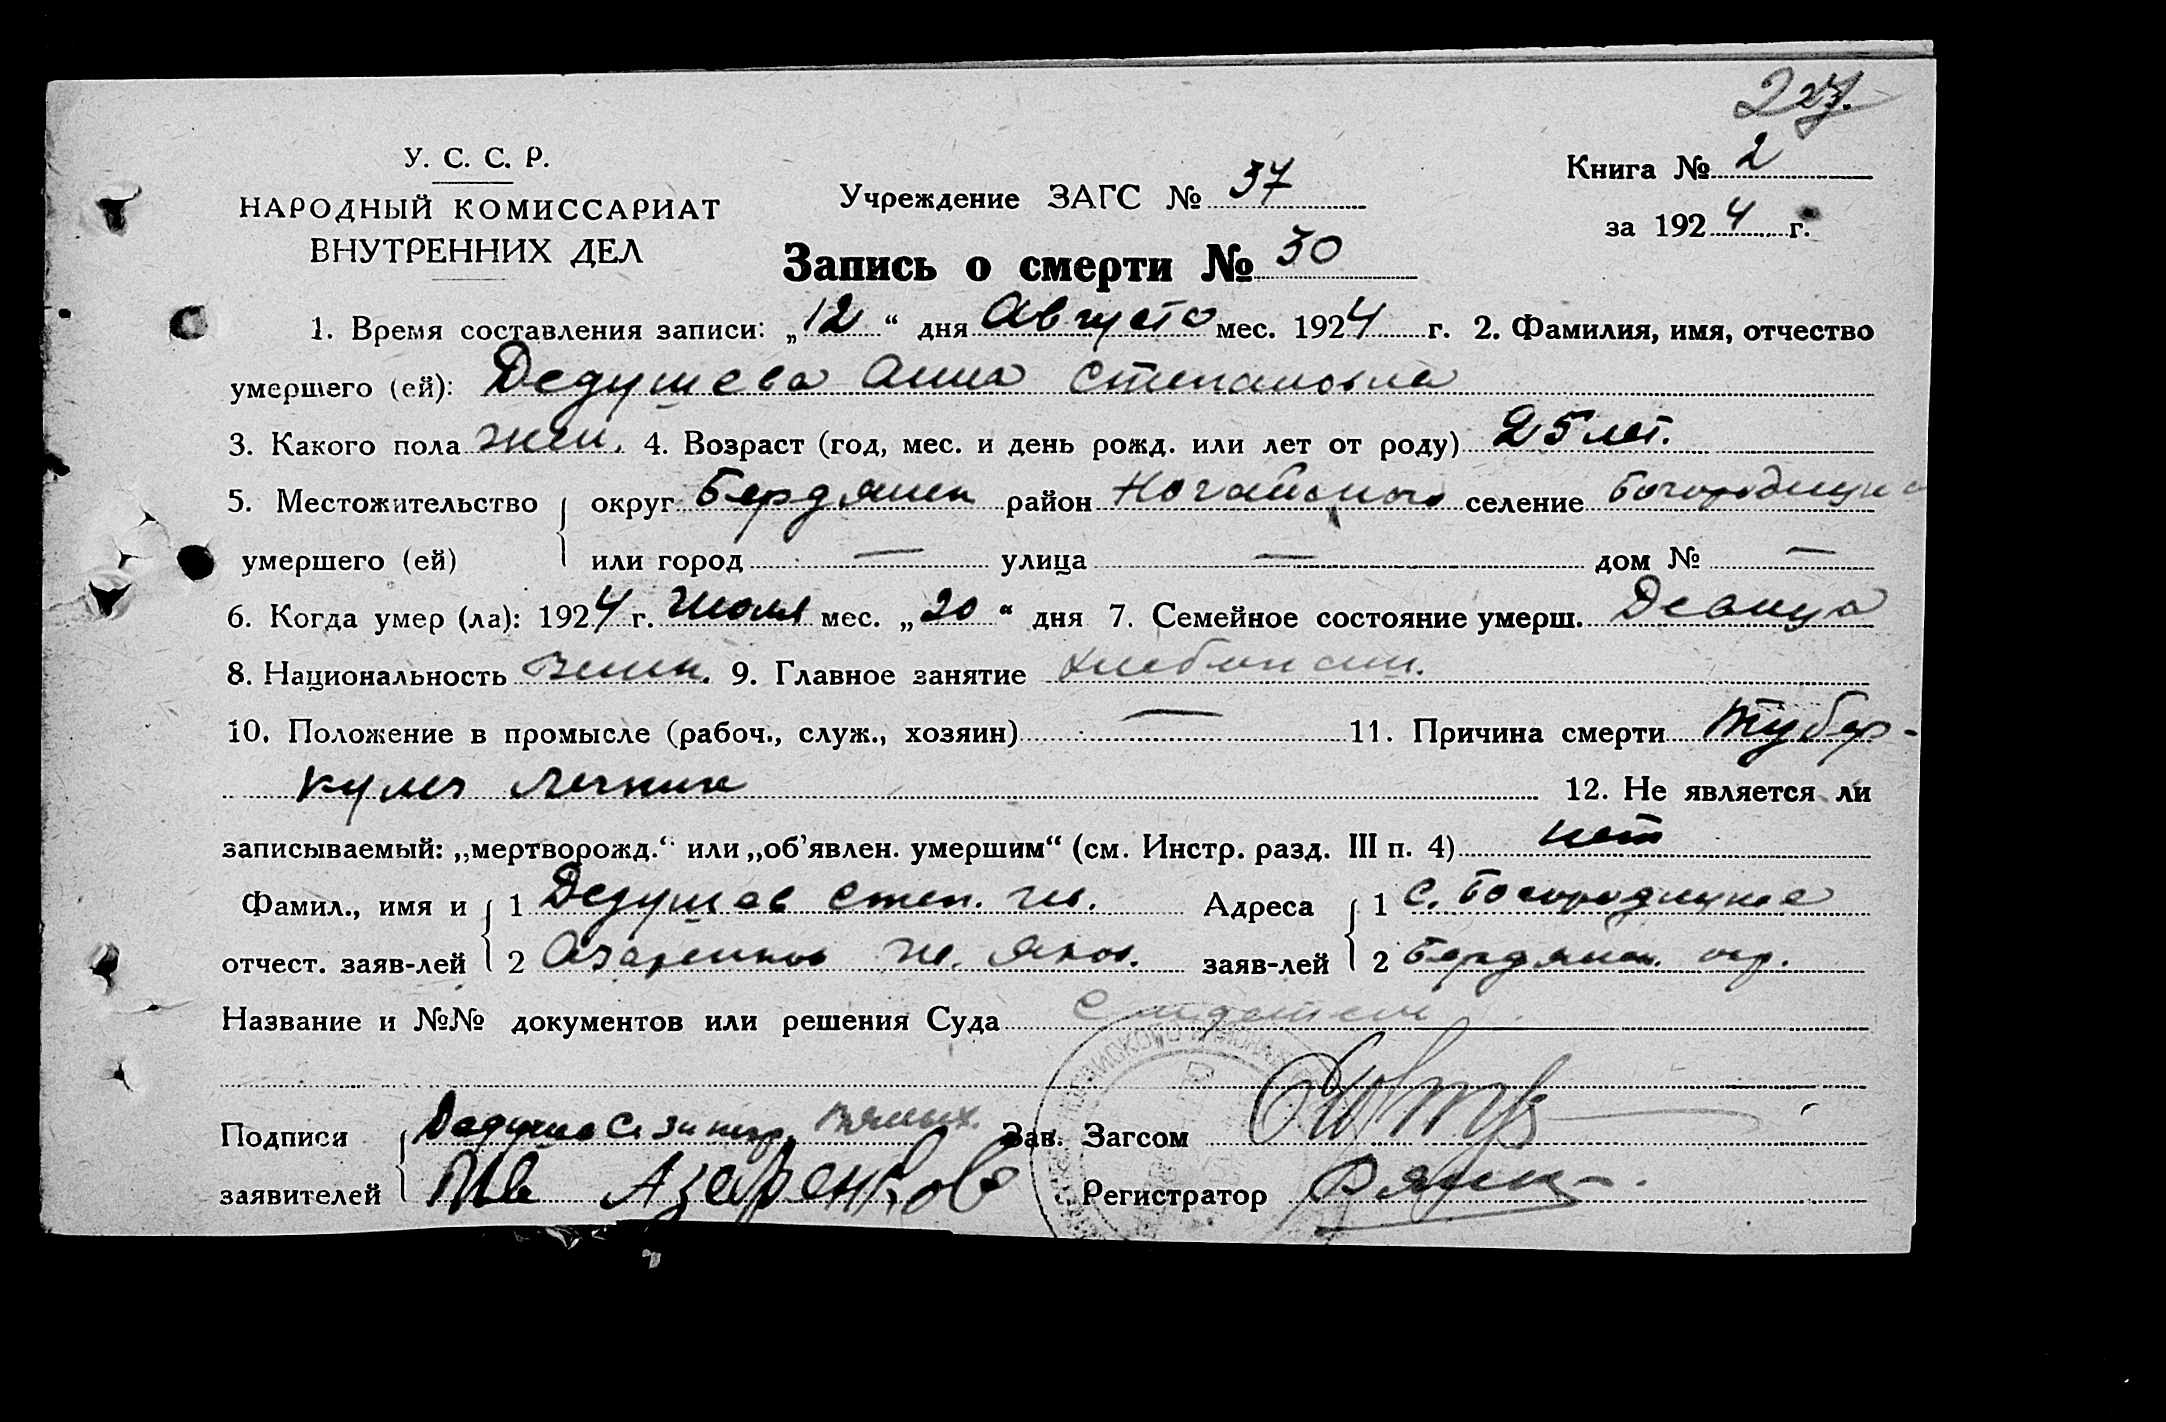 227.
У. С. С. Р.
НАРОДНЫЙ КОМИССАРИАТ
ВНУТРЕННИХ ДЕЛ
Учреждение ЗАГС № 37
Книга № 2
за 1924 г.
Запись о смерти № 30
1. Время составления записи: „12“ дня Августа мес. 1924 г. 2. Фамилия, имя, отчество
умершего (ей): Дедушева Анна Степановна
3. Какого пола жен. 4. Возраст (год, мес. и день рожд. или лет от роду) 25 лет.
5. Местожительство округ Бердянск район Ногайского селение Богородицкое
умершего (ей) или город — улица — дом № —
6. Когда умер (ла): 1924 г. Июля мес. „20“ дня 7. Семейное состояние умерш. Девица
8. Национальность 9. Главное занятие хлебопаш.
10. Положение в промысле (рабоч., служ., хозяин) — 11. Причина смерти Тубер-
кулез легких 12. Не является ли
записываемый: „мертворожд.“ или „об'явлен. умершим“ (см. Инстр. разд. III п. 4) нет
Фамил., имя и 1 Дедушев Степ. Ив. Адреса 1 С. Богородицкое
отчест. заяв-лей 2 Азаренков Ив. Яков. заяв-лей 2 Бердянск. окр.
Название и №№ документов или решения Суда
Подписи Дедушев Зав. Загсом
заявителей Ив Азаренков Регистратор